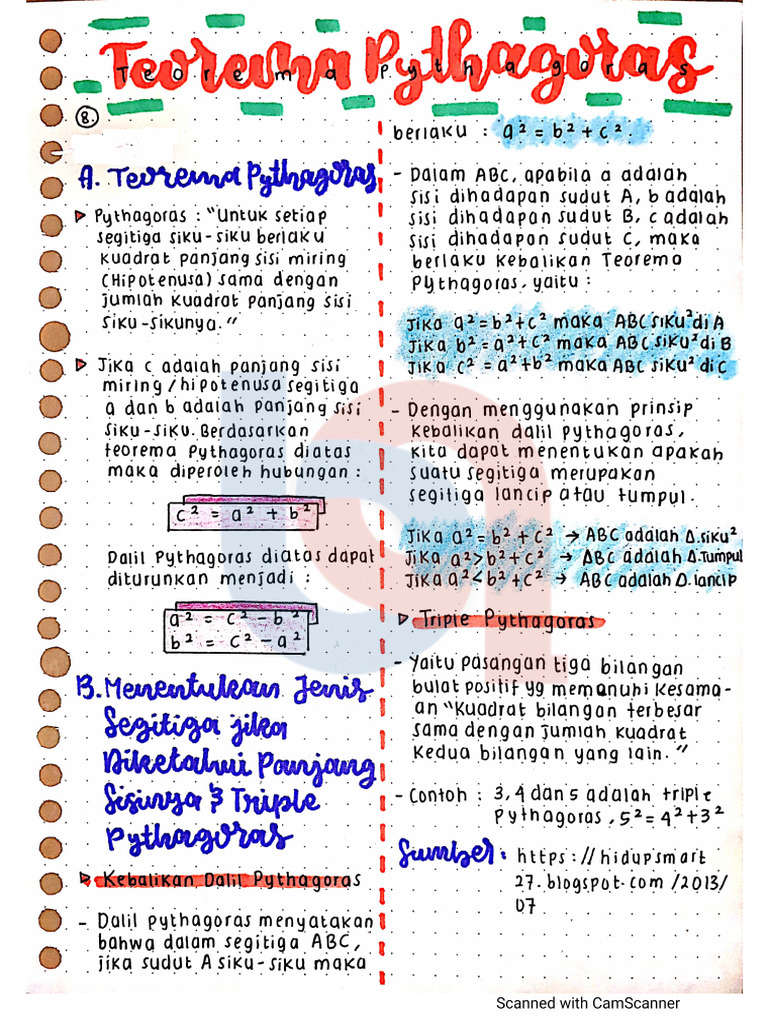 Teorema Pythagoras
Teorema Pythagoras
8.
A. Teorema Pythagoras
Pythagoras : "Untuk setiap
segitiga siku-siku berlaku
kuadrat panjang sisi miring
(Hipotenusa) sama dengan
jumlah kuadrat panjang sisi
siku-sikunya."
Jika c adalah panjang sisi
miring/hipotenusa segitiga
a dan b adalah panjang sisi
siku-siku. Berdasarkan
teorema Pythagoras diatas
maka diperoleh hubungan :
c² = a² + b²
Dalil Pythagoras diatas dapat
diturunkan menjadi :
a² = c² - b²
b² = c² - a²
B. Menentukan Jenis
Segitiga jika
Diketahui Panjang
Sisinya & Triple
Pythagoras
Kebalikan Dalil Pythagoras
- Dalil pythagoras menyatakan
bahwa dalam segitiga ABC,
jika sudut A siku-siku maka
berlaku : a² = b² + c².
- Dalam ABC, apabila a adalah
sisi dihadapan sudut A, b adalah
sisi dihadapan sudut B, c adalah
sisi dihadapan sudut C, maka
berlaku kebalikan Teorema
Pythagoras, yaitu :
Jika a² = b² + c² maka ABC siku² di A
Jika b² = a² + c² maka ABC siku² di B
Jika c² = a² + b² maka ABC siku² di C
- Dengan menggunakan prinsip
kebalikan dalil pythagoras,
kita dapat menentukan apakah
suatu segitiga merupakan
segitiga lancip atau tumpul.
Jika a² = b² + c² → ABC adalah Δ.siku²
Jika a² > b² + c² → ABC adalah Δ.Tumpul
Jika a² < b² + c² → ABC adalah Δ.lancip
Triple Pythagoras
- Yaitu pasangan tiga bilangan
bulat positif yg memenuhi kesama-
an "Kuadrat bilangan terbesar
sama dengan jumlah kuadrat
kedua bilangan yang lain."
- Contoh : 3, 4 dan 5 adalah triple
pythagoras, 5² = 4² + 3²
Sumber : https://hidupsmart
27.blogspot.com/2013/
07
Scanned with CamScanner